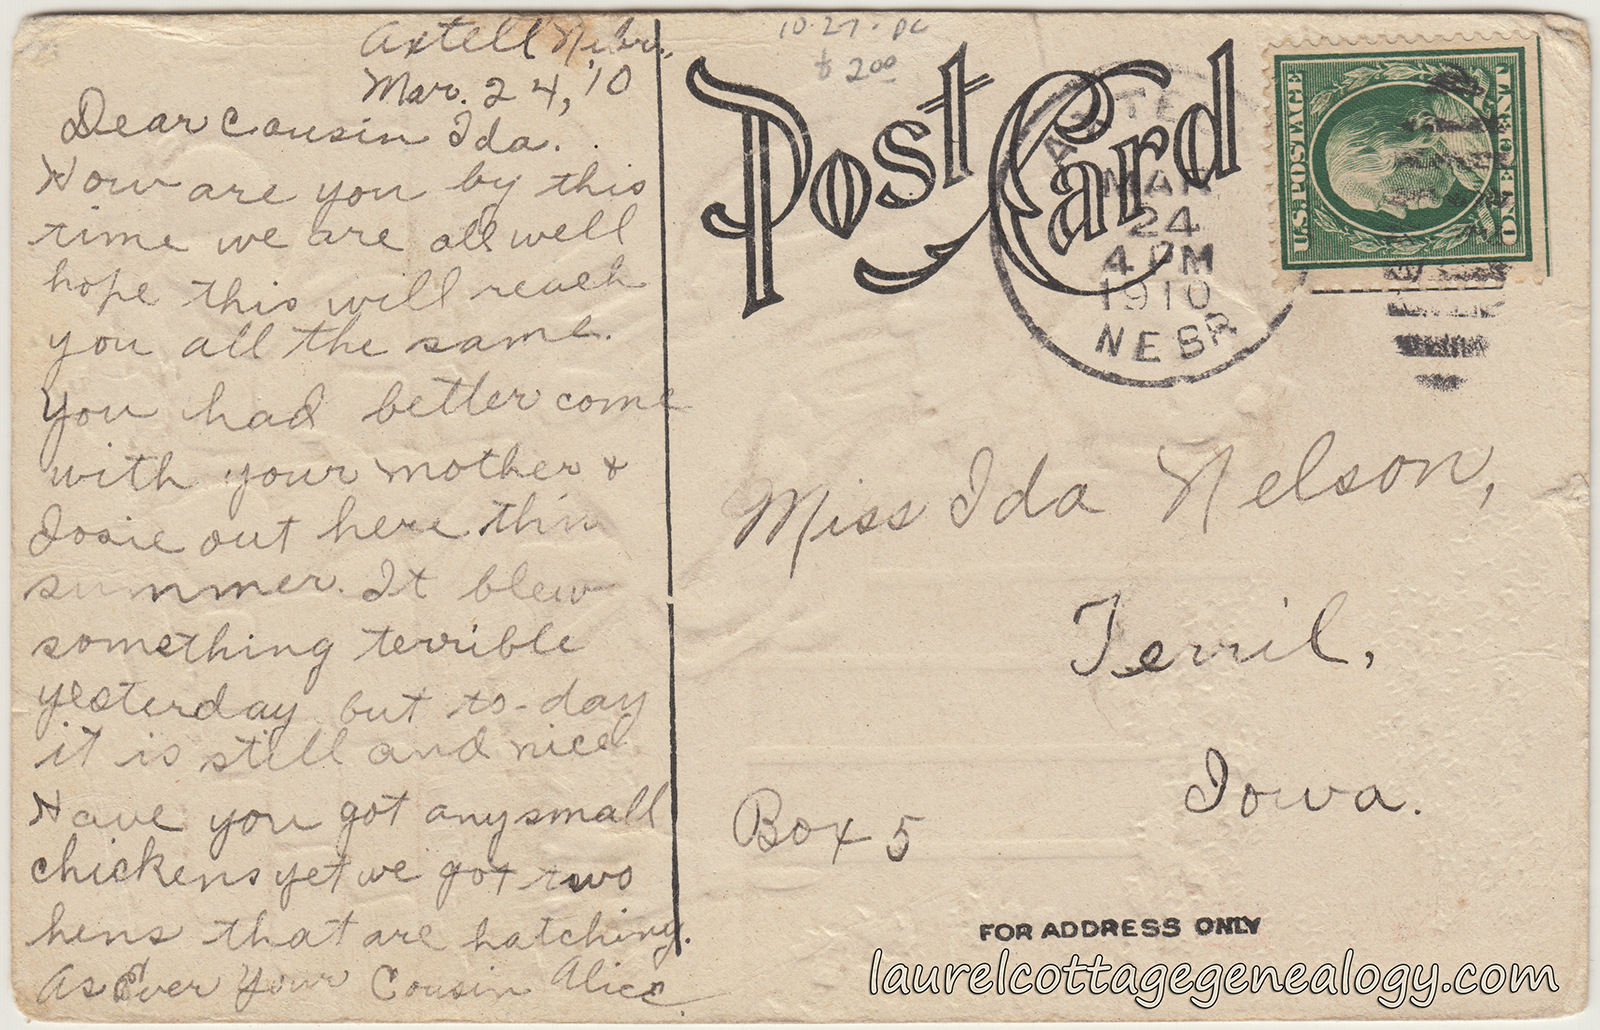 Axtell Nebr.
Mar. 24, '10
Dear Cousin Ida.
How are you by this
time we are all well
hope this will reach
you all the same.
You had better come
with your mother &
Josie out here this
summer. It blew
something terrible
yesterday but to-day
it is still and nice
Have you got any small
chickens yet we got two
hens that are hatching.
As Ever Your Cousin Alice
10-27-PC
$2.00
Post Card
AXTELL
MAR
24
4 PM
1910
NEBR
U.S. POSTAGE
ONE CENT
Miss Ida Nelson,
Terril,
Iowa.
Box 5
FOR ADDRESS ONLY
laurelcottagegenealogy.com